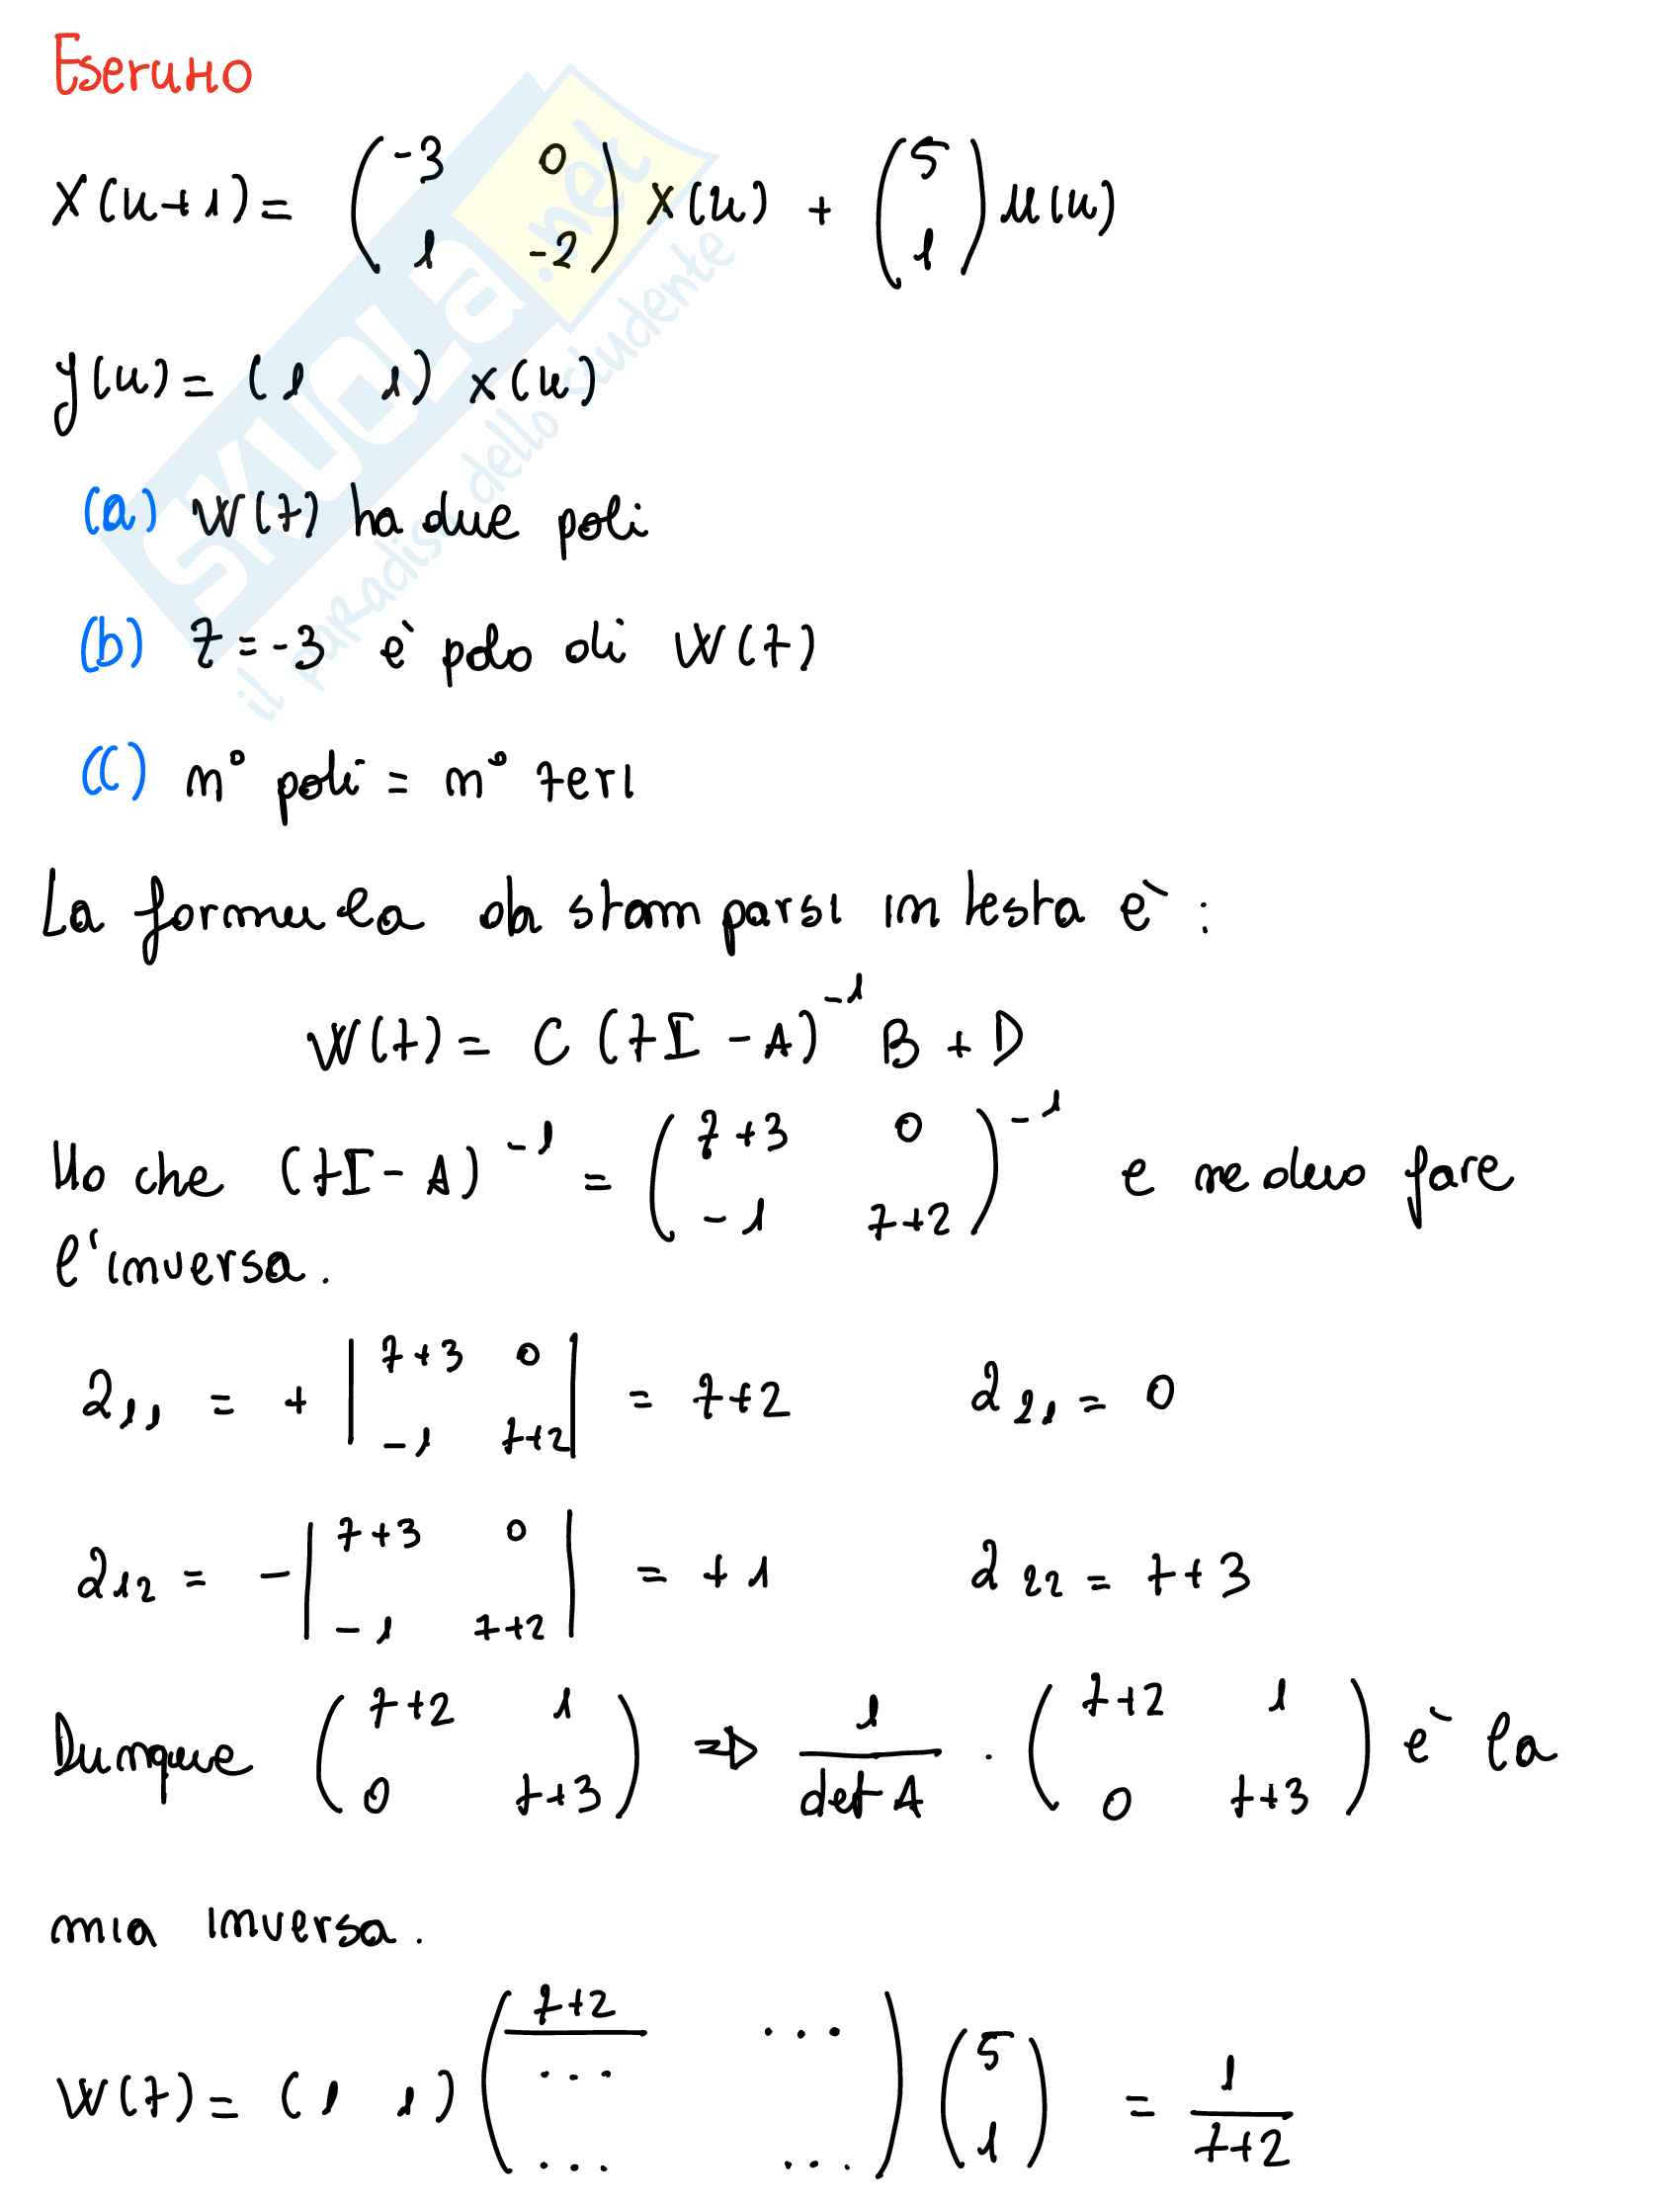 Esercizio
X(k+1) = ( -3 0 ; 1 -2 ) X(k) + ( 5 ; 1 ) u(k)
y(k) = (1 1) x(k)
(a) W(z) ha due poli
(b) z = -3 è polo di W(z)
(c) n° poli = n° zeri
La formula da stamparsi in testa è :
W(z) = C (zI - A)^-1 B + D
Ho che (zI - A)^-1 = ( z+3 0 ; -1 z+2 )^-1 e ne devo fare
l'inversa.
a11 = + | z+3 0 ; -1 z+2 | = z+2 a21 = 0
a12 = - | z+3 0 ; -1 z+2 | = +1 a22 = z+3
Dunque ( z+2 1 ; 0 z+3 ) => 1/det A · ( z+2 1 ; 0 z+3 ) è la
mia inversa.
W(z) = (1 1) ( z+2/... ... ; ... ... ) ( 5 ; 1 ) = 1/z+2
SKUOLA.net
il paradiso dello studente